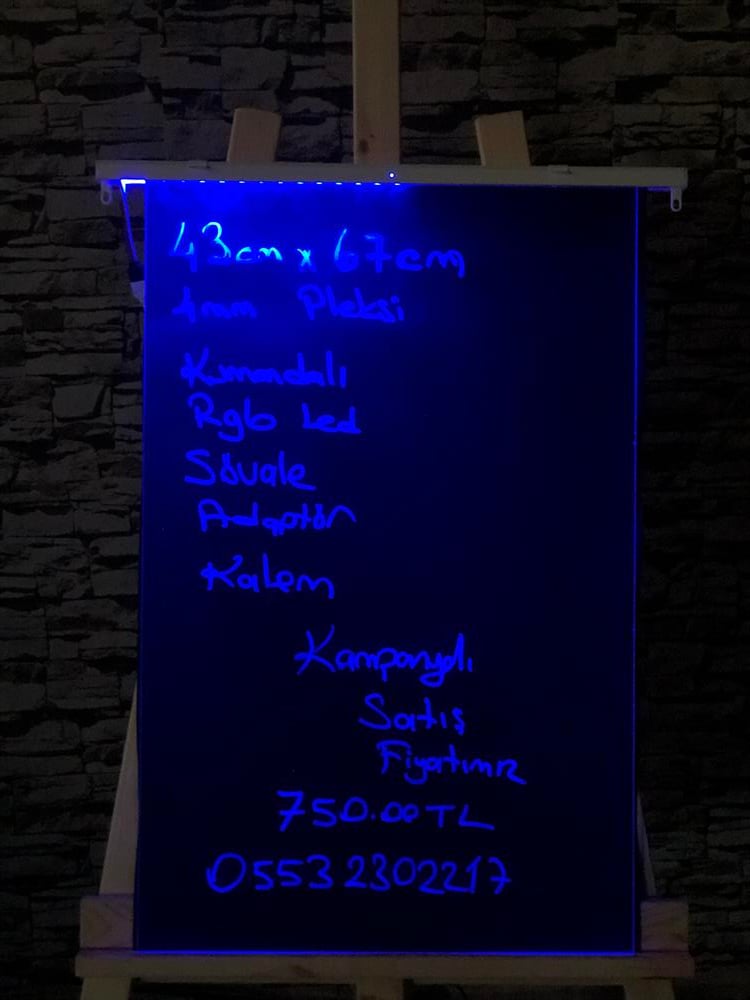 43cm x 67cm
4mm Pleksi
Kumandalı
Rgb Led
Şövale
Adaptör
Kalem
Kampanyalı
Satış
Fiyatımız
750.00 TL
0553 2302217